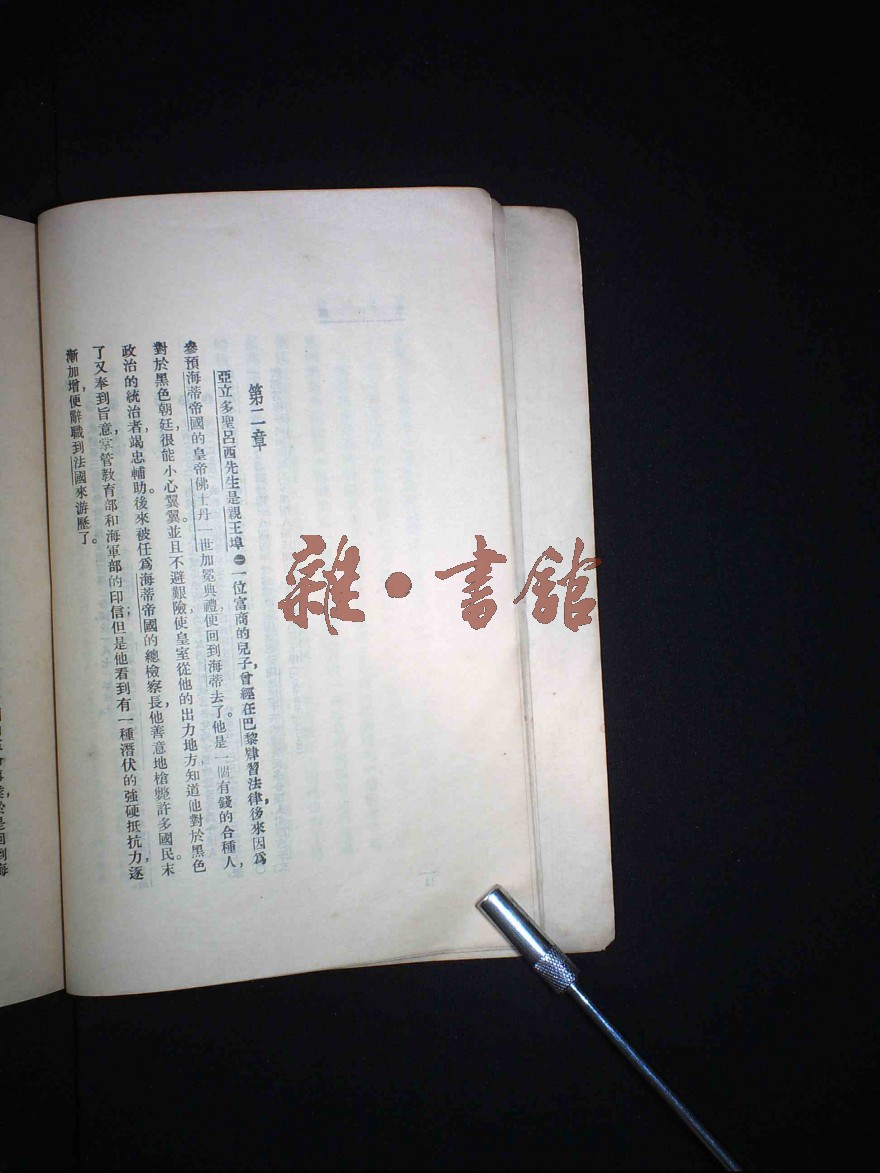 第二章
亞立多聖呂西先生是親王埠㊀一位富商的兒子，曾經在巴黎肄習法律，後來因爲
參預海蒂帝國的皇帝佛士丹一世加冕典禮，便回到海蒂去了。他是一個有錢的合種人，
對於黑色朝廷很能小心翼翼，並且不避艱險使皇室從他的出力地方知道他對於黑色
政治的統治者竭忠輔助。後來被任爲海蒂帝國的總檢察長，他善意地槍斃許多國民。末
了又奉到旨意，掌管教育部和海軍部的印信；但是他看到有一種潛伏的強硬抵抗力，逐
漸加增，便辭職到法國來游歷了。
雜·書館
是回到海